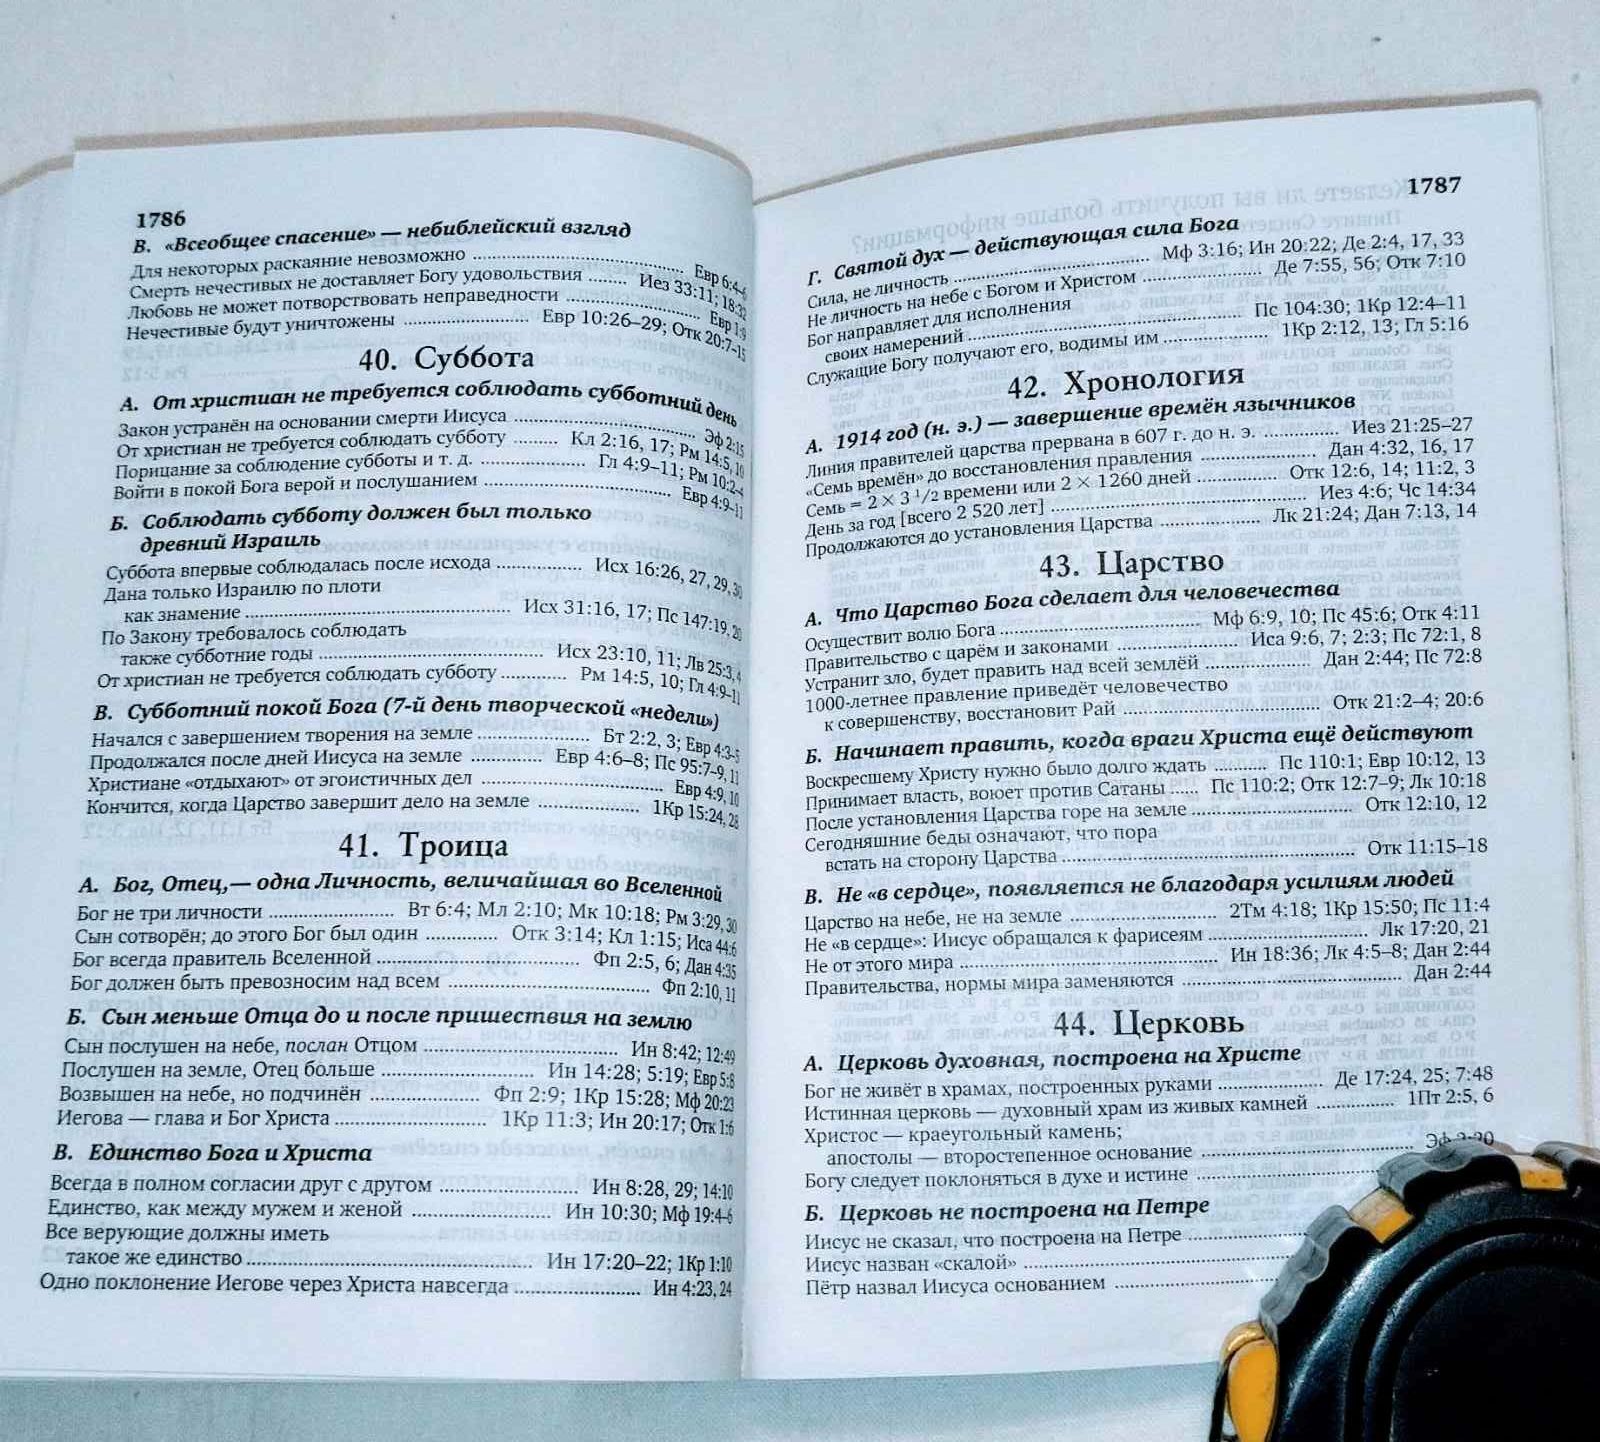 1786
В. «Всеобщее спасение» — небиблейский взгляд
Для некоторых раскаяние невозможно ........ Евр 6:4–6
Смерть нечестивых не доставляет Богу удовольствия ........ Иез 33:11; 18:32
Любовь не может потворствовать неправедности ........ Евр 1:9
Нечестивые будут уничтожены ........ Евр 10:26–29; Отк 20:7–15
40. Суббота
А. От христиан не требуется соблюдать субботний день
Закон устранён на основании смерти Иисуса ........ Эф 2:15
От христиан не требуется соблюдать субботу ........ Кл 2:16, 17; Рм 14:5, 10
Порицание за соблюдение субботы и т. д. ........ Гл 4:9–11; Рм 10:2–4
Войти в покой Бога верой и послушанием ........ Евр 4:9–11
Б. Соблюдать субботу должен был только
древний Израиль
Суббота впервые соблюдалась после исхода ........ Исх 16:26, 27, 29, 30
Дана только Израилю по плоти
как знамение ........ Исх 31:16, 17; Пс 147:19, 20
По Закону требовалось соблюдать
также субботние годы ........ Исх 23:10, 11; Лв 25:3, 4
От христиан не требуется соблюдать субботу ........ Рм 14:5, 10; Гл 4:9–11
В. Субботний покой Бога (7-й день творческой «недели»)
Начался с завершением творения на земле ........ Бт 2:2, 3; Евр 4:3–5
Продолжался после дней Иисуса на земле ........ Евр 4:6–8; Пс 95:7–9, 11
Христиане «отдыхают» от эгоистичных дел ........ Евр 4:9, 10
Кончится, когда Царство завершит дело на земле ........ 1Кр 15:24, 28
41. Троица
А. Бог, Отец,— одна Личность, величайшая во Вселенной
Бог не три личности ........ Вт 6:4; Мл 2:10; Мк 10:18; Рм 3:29, 30
Сын сотворён; до этого Бог был один ........ Отк 3:14; Кл 1:15; Иса 44:6
Бог всегда правитель Вселенной ........ Фп 2:5, 6; Дан 4:35
Бог должен быть превозносим над всем ........ Фп 2:10, 11
Б. Сын меньше Отца до и после пришествия на землю
Сын послушен на небе, послан Отцом ........ Ин 8:42; 12:49
Послушен на земле, Отец больше ........ Ин 14:28; 5:19; Евр 5:8
Возвышен на небе, но подчинён ........ Фп 2:9; 1Кр 15:28; Мф 20:23
Иегова — глава и Бог Христа ........ 1Кр 11:3; Ин 20:17; Отк 1:6
В. Единство Бога и Христа
Всегда в полном согласии друг с другом ........ Ин 8:28, 29; 14:10
Единство, как между мужем и женой ........ Ин 10:30; Мф 19:4–6
Все верующие должны иметь
такое же единство ........ Ин 17:20–22; 1Кр 1:10
Одно поклонение Иегове через Христа навсегда ........ Ин 4:23, 24
1787
Г. Святой дух — действующая сила Бога
Сила, не личность ........ Мф 3:16; Ин 20:22; Де 2:4, 17, 33
Не личность на небе с Богом и Христом ........ Де 7:55, 56; Отк 7:10
Бог направляет для исполнения
своих намерений ........ Пс 104:30; 1Кр 12:4–11
Служащие Богу получают его, водимы им ........ 1Кр 2:12, 13; Гл 5:16
42. Хронология
А. 1914 год (н. э.) — завершение времён язычников
Линия правителей царства прервана в 607 г. до н. э. ........ Иез 21:25–27
«Семь времён» до восстановления правления ........ Дан 4:32, 16, 17
Семь = 2 × 3 1/2 времени или 2 × 1260 дней ........ Отк 12:6, 14; 11:2, 3
День за год [всего 2 520 лет] ........ Иез 4:6; Чс 14:34
Продолжаются до установления Царства ........ Лк 21:24; Дан 7:13, 14
43. Царство
А. Что Царство Бога сделает для человечества
Осуществит волю Бога ........ Мф 6:9, 10; Пс 45:6; Отк 4:11
Правительство с царём и законами ........ Иса 9:6, 7; 2:3; Пс 72:1, 8
Устранит зло, будет править над всей землёй ........ Дан 2:44; Пс 72:8
1000-летнее правление приведёт человечество
к совершенству, восстановит Рай ........ Отк 21:2–4; 20:6
Б. Начинает править, когда враги Христа ещё действуют
Воскресшему Христу нужно было долго ждать ........ Пс 110:1; Евр 10:12, 13
Принимает власть, воюет против Сатаны ........ Пс 110:2; Отк 12:7–9; Лк 10:18
После установления Царства горе на земле ........ Отк 12:10, 12
Сегодняшние беды означают, что пора
встать на сторону Царства ........ Отк 11:15–18
В. Не «в сердце», появляется не благодаря усилиям людей
Царство на небе, не на земле ........ 2Тм 4:18; 1Кр 15:50; Пс 11:4
Не «в сердце»: Иисус обращался к фарисеям ........ Лк 17:20, 21
Не от этого мира ........ Ин 18:36; Лк 4:5–8; Дан 2:44
Правительства, нормы мира заменяются ........ Дан 2:44
44. Церковь
А. Церковь духовная, построена на Христе
Бог не живёт в храмах, построенных руками ........ Де 17:24, 25; 7:48
Истинная церковь — духовный храм из живых камней ........ 1Пт 2:5, 6
Христос — краеугольный камень;
апостолы — второстепенное основание ........ Эф 2:20
Богу следует поклоняться в духе и истине ........
Б. Церковь не построена на Петре
Иисус не сказал, что построена на Петре ........
Иисус назван «скалой» ........
Пётр назвал Иисуса основанием ........